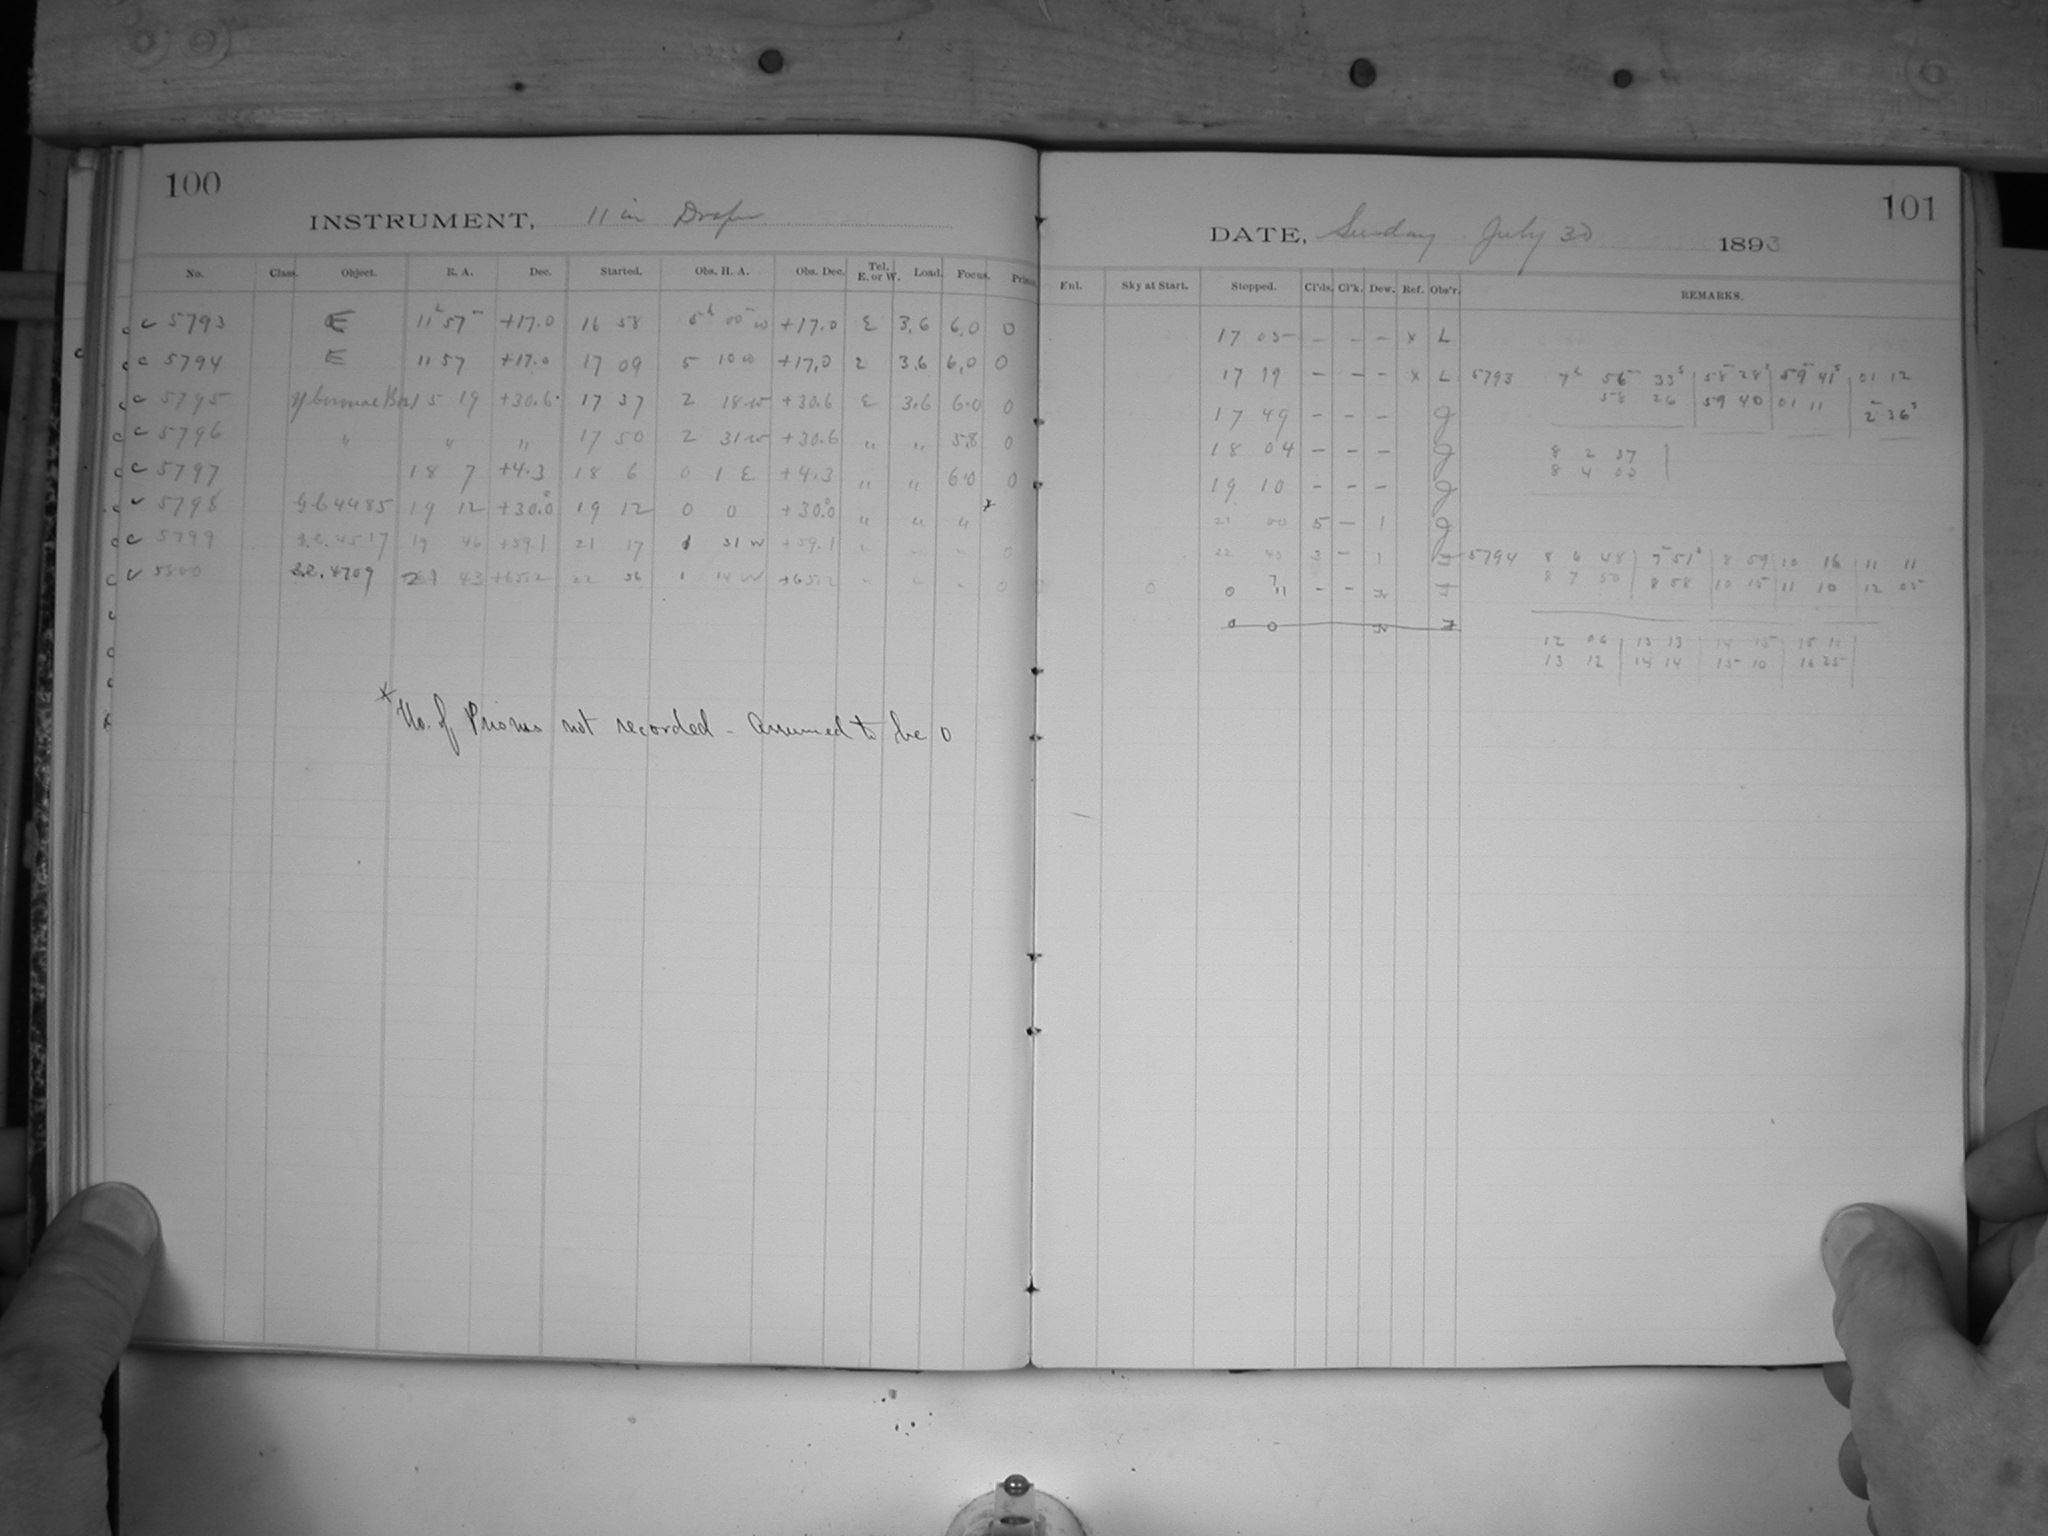 100
INSTRUMENT, 11 in Draper
No. Class. Object. R. A. Dec. Started. Obs. H. A. Obs. Dec. Tel. E. or W. Load. Focus. Prisms
c 5793 E 11h 57m +17.0 16 58 5h 00m w +17.0 E 3.6 6.0 0
c 5794 E 11 57 +17.0 17 09 5 10 w +17.0 3.6 6.0 0
c 5795 η Coronae Bor 15 19 +30.6 17 37 2 18 w +30.6 E 3.6 6.0 0
c 5796 " " " 17 50 2 31 w +30.6 " " 5.8 0
c 5797 18 7 +4.3 18 6 0 1 E +4.3 " " 6.0 0
c 5798 G.C. 4485 19 12 +30.0 19 12 0 0 +30.0 " " " *
c 5799 G.C. 4517 19 46 +59.1 21 17 1 31 w +59.1 " " " 0
5800 4709 43 +65.2 22 56 1 14 w +65.2 " " " 0
* No. of Prisms not recorded - assumed to be 0
101
DATE, Sunday July 30 1893
Enl. Sky at Start. Stopped. Cl'ds. Cl'k. Dew. Ref. Obs'r. REMARKS.
17 05 - - - x L
17 19 - - - x L 5793 7h 56m 33s 58m 28s 59m 41s 01 12
58 26 59 40 01 11 2m 36s
17 49 - - - J
18 04 - - - J 8 2 37
8 4 00
19 10 - - - J
21 00 5 - 1 J
22 3 - 1 5794 8 6 48 7m 51s 8 59 10 16 11 11
8 7 50 8 58 10 15 11 10 12 05
0 - -
0 0
12 06 13 13 14 15 15 11
13 12 14 14 15 10 16 25